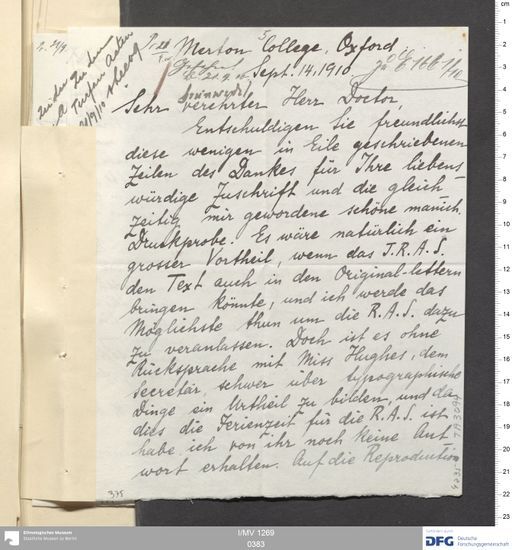 Merton College, Oxford
Sept. 14, 1910
Sehr verehrter Herr Doctor,
Entschuldigen Sie freundlichst
diese wenigen in Eile geschriebenen
Zeilen des Dankes für Ihre liebens
würdige Zuschrift und die gleich
zeitig mir gewordene schöne manich.
Druckprobe. Es wäre natürlich ein
grosser Vortheil, wenn das J.R.A.S.
den Text auch in den Original-lettern
bringen könnte, und ich werde das
Möglichste thun um die R.A.S. dazu
zu veranlassen. Doch ist es ohne
Rücksprache mit Miss Hughes, dem
Secretär, schwer über typographische
Dinge ein Urtheil zu bilden, und da
dies die Ferienzeit für die R.A.S. ist
habe ich von ihr noch keine Ant
wort erhalten. Auf die Reproduction
375
Ethnologisches Museum
Staatliche Museen zu Berlin
I/MV 1269
0383
DFG
Deutsche
Forschungsgemeinschaft